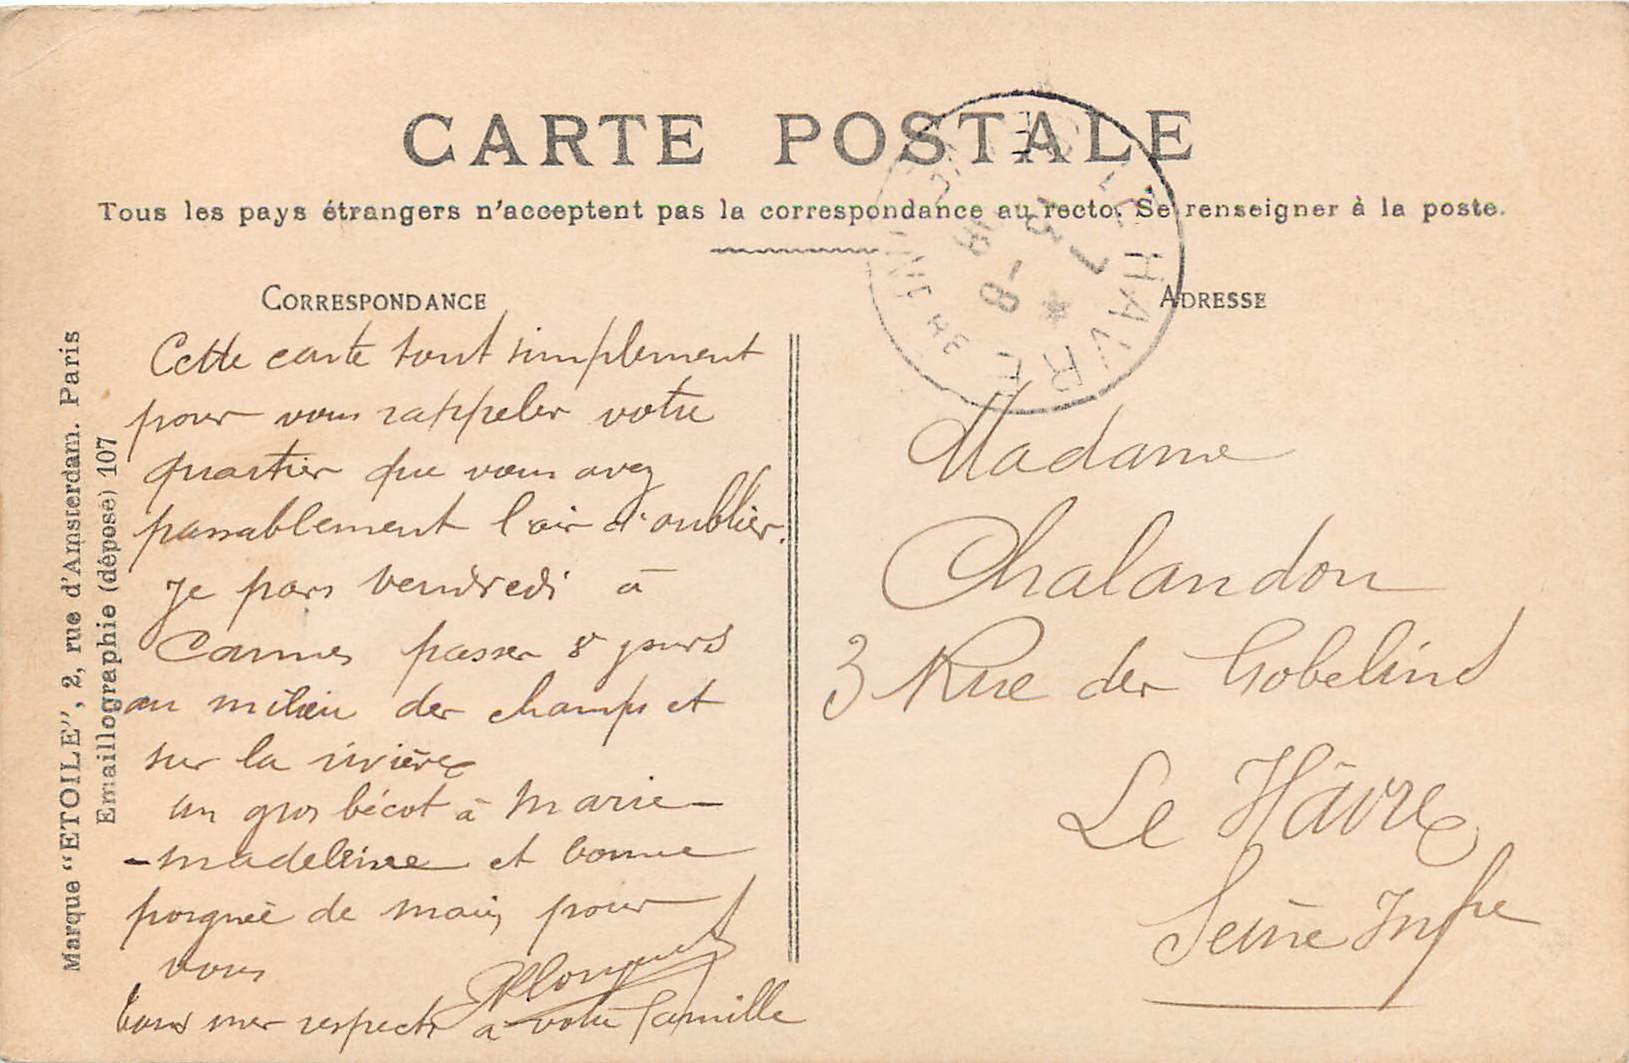 CARTE POSTALE
Tous les pays étrangers n'acceptent pas la correspondance au recto. Se renseigner à la poste.
CORRESPONDANCE
ADRESSE
Marque "ETOILE", 2, rue d'Amsterdam. Paris
Emaillographie (déposé) 107
LE HAVRE
Cette carte tout simplement
pour vous rappeler votre
quartier que vous avez
passablement l'air d'oublier.
Je pars vendredi à
passer 8 jours
au milieu des champs et
sur la rivière
un gros bécot à Marie-
-madeleine et bonne
poignée de main pour
vous
tous mes respects à votre famille
Madame
Chalandon
3 Rue des Gobelins
Le Hâvre
Seine Infre